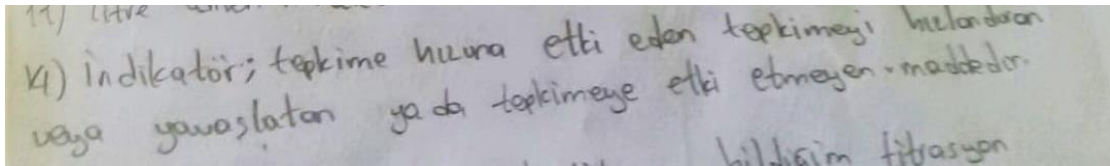 11) litre
14) İndikatör; tepkime hızına etki eden tepkimeyi hızlandıran
veya yavaşlatan ya da tepkimeye etki etmeyen maddedir.
bildiğim titrasyon